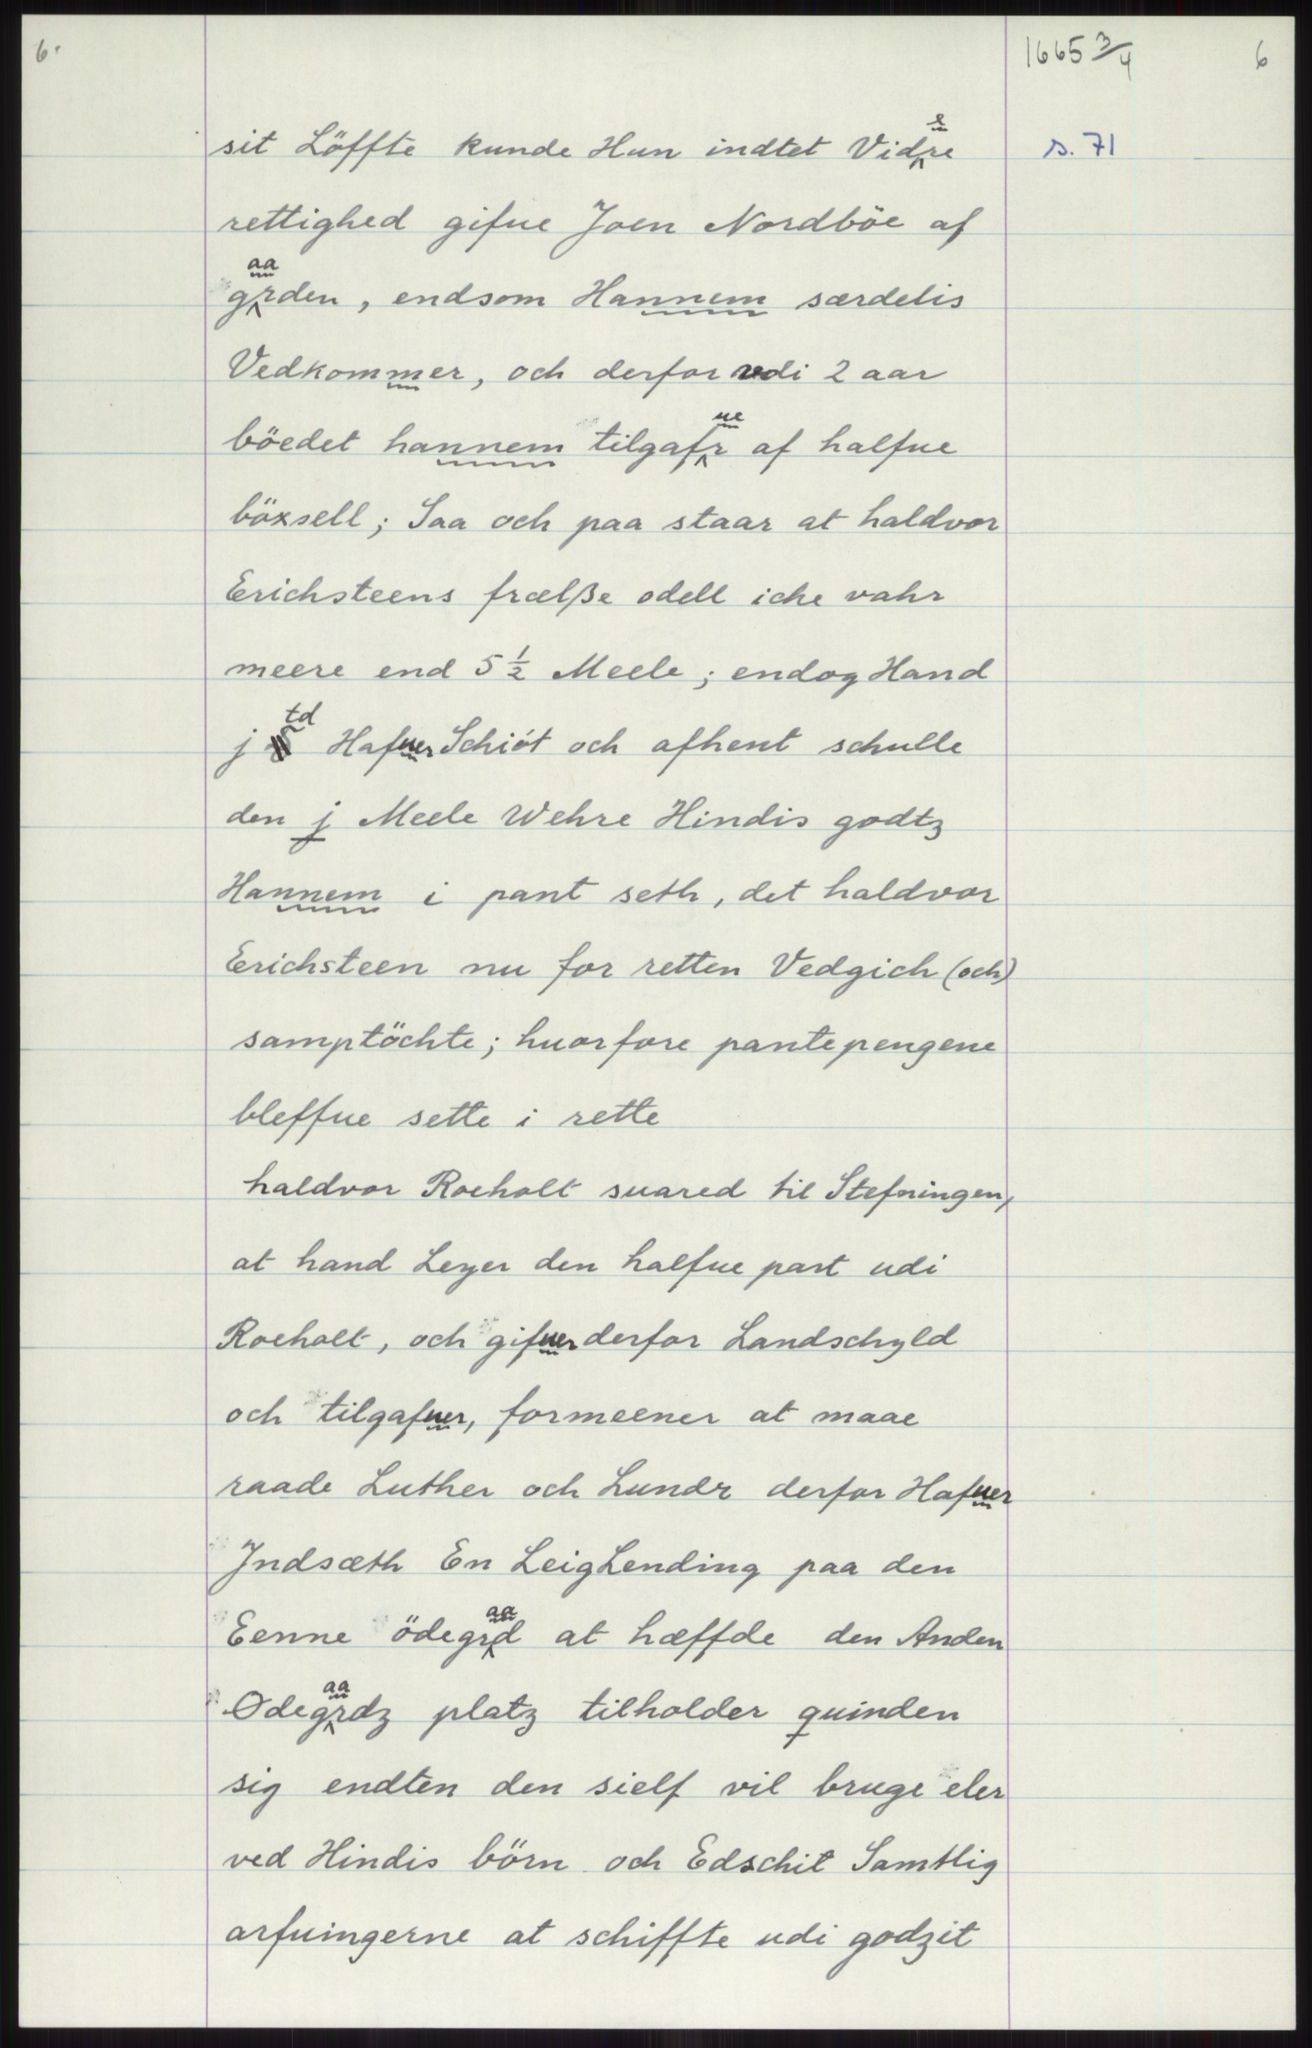 6.
1665 3/4
6
sit Löffte kunde Hun indtet Videre
s. 71
rettighed gifue Joen Nordböe af
gaarden, endsom Hannem særdelis
Vedkommer, och derfor udi 2 aar
böedet hannem tilgafuer af halfue
böxsell; Saa och paa staar at haldvor
Erichsteens frælße odell iche vahr
meere end 5 1/2 Meele; endog Hand
j td Hafuer Schiöt och afhent schulle
den j Meele Wehre Hindis godtz
Hannem i pant seth, det haldvor
Erichsteen nu for retten Vedgich (och)
samptöchte; huorfore pantepengene
bleffue sette i rette
haldvor Roeholt suared til Stefningen,
at hand Leyer den halfue part udi
Roeholt, och gifuer derfor Landschyld
och tilgafuer, formeener at maae
raade Luther och Lundr derfor Hafuer
Jndsæth En LeigLending paa den
Eenne ödegaard at hæffde den Anden
Ødegaardz platz tilholder quinden
sig endten den sielf vil bruge eler
ved Hindis börn och Edschit Samtlig
arfuingerne at schiffte udi godzit